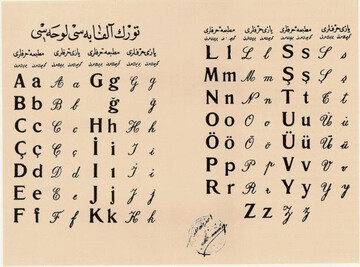 تورك آلفابه‌سی لوحه‌سی
مطبعه حرفلری يازی حرفلری مطبعه حرفلری يازی حرفلری
A a A a G g G g
B b B b ğ ğ
C c C c H h H h
Ç ç Ç ç İ i İ i
D d D d I ı I ı
E e E e J j J j
F f F f K k K k
مطبعه حرفلری يازی حرفلری مطبعه حرفلری يازی حرفلری
L l L l S s S s
M m M m Ş ş Ş ş
N n N n T t T t
O o O o U u U u
Ö ö Ö ö Ü ü Ü ü
P p P p V v V v
R r R r Y y Y y
Z z Z z